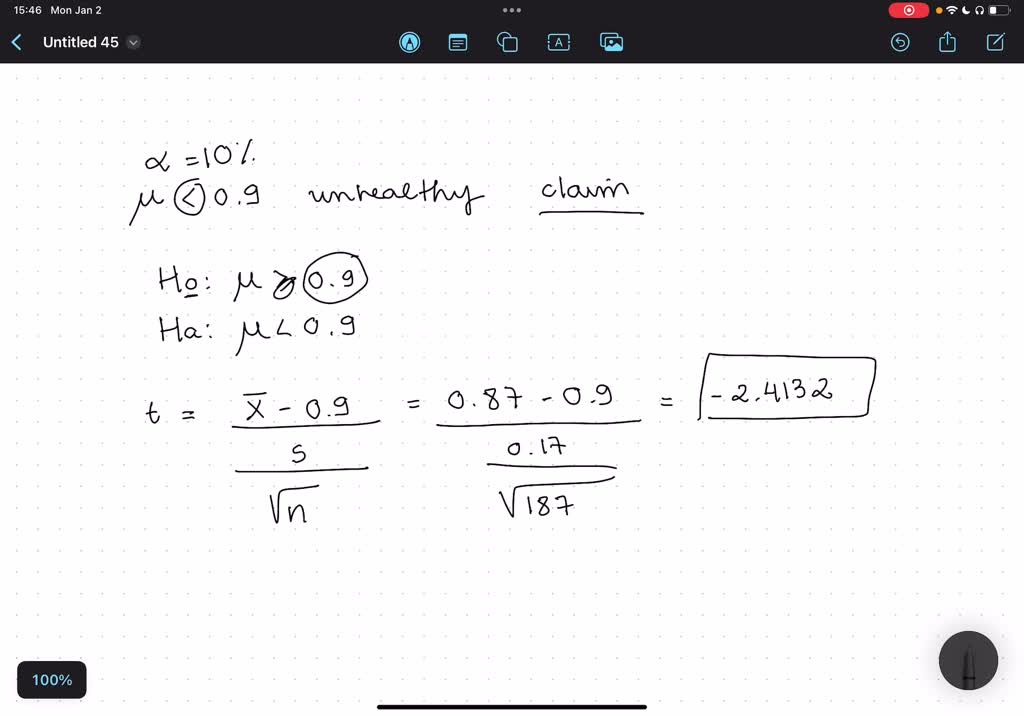 15:46 Mon Jan 2
Untitled 45
A
α = 10%
μ < 0.9 unhealthy claim
Ho: μ ≥ 0.9
Ha: μ < 0.9
t = (x̄ - 0.9) / (s / √n) = (0.87 - 0.9) / (0.17 / √187) = -2.4132
100%